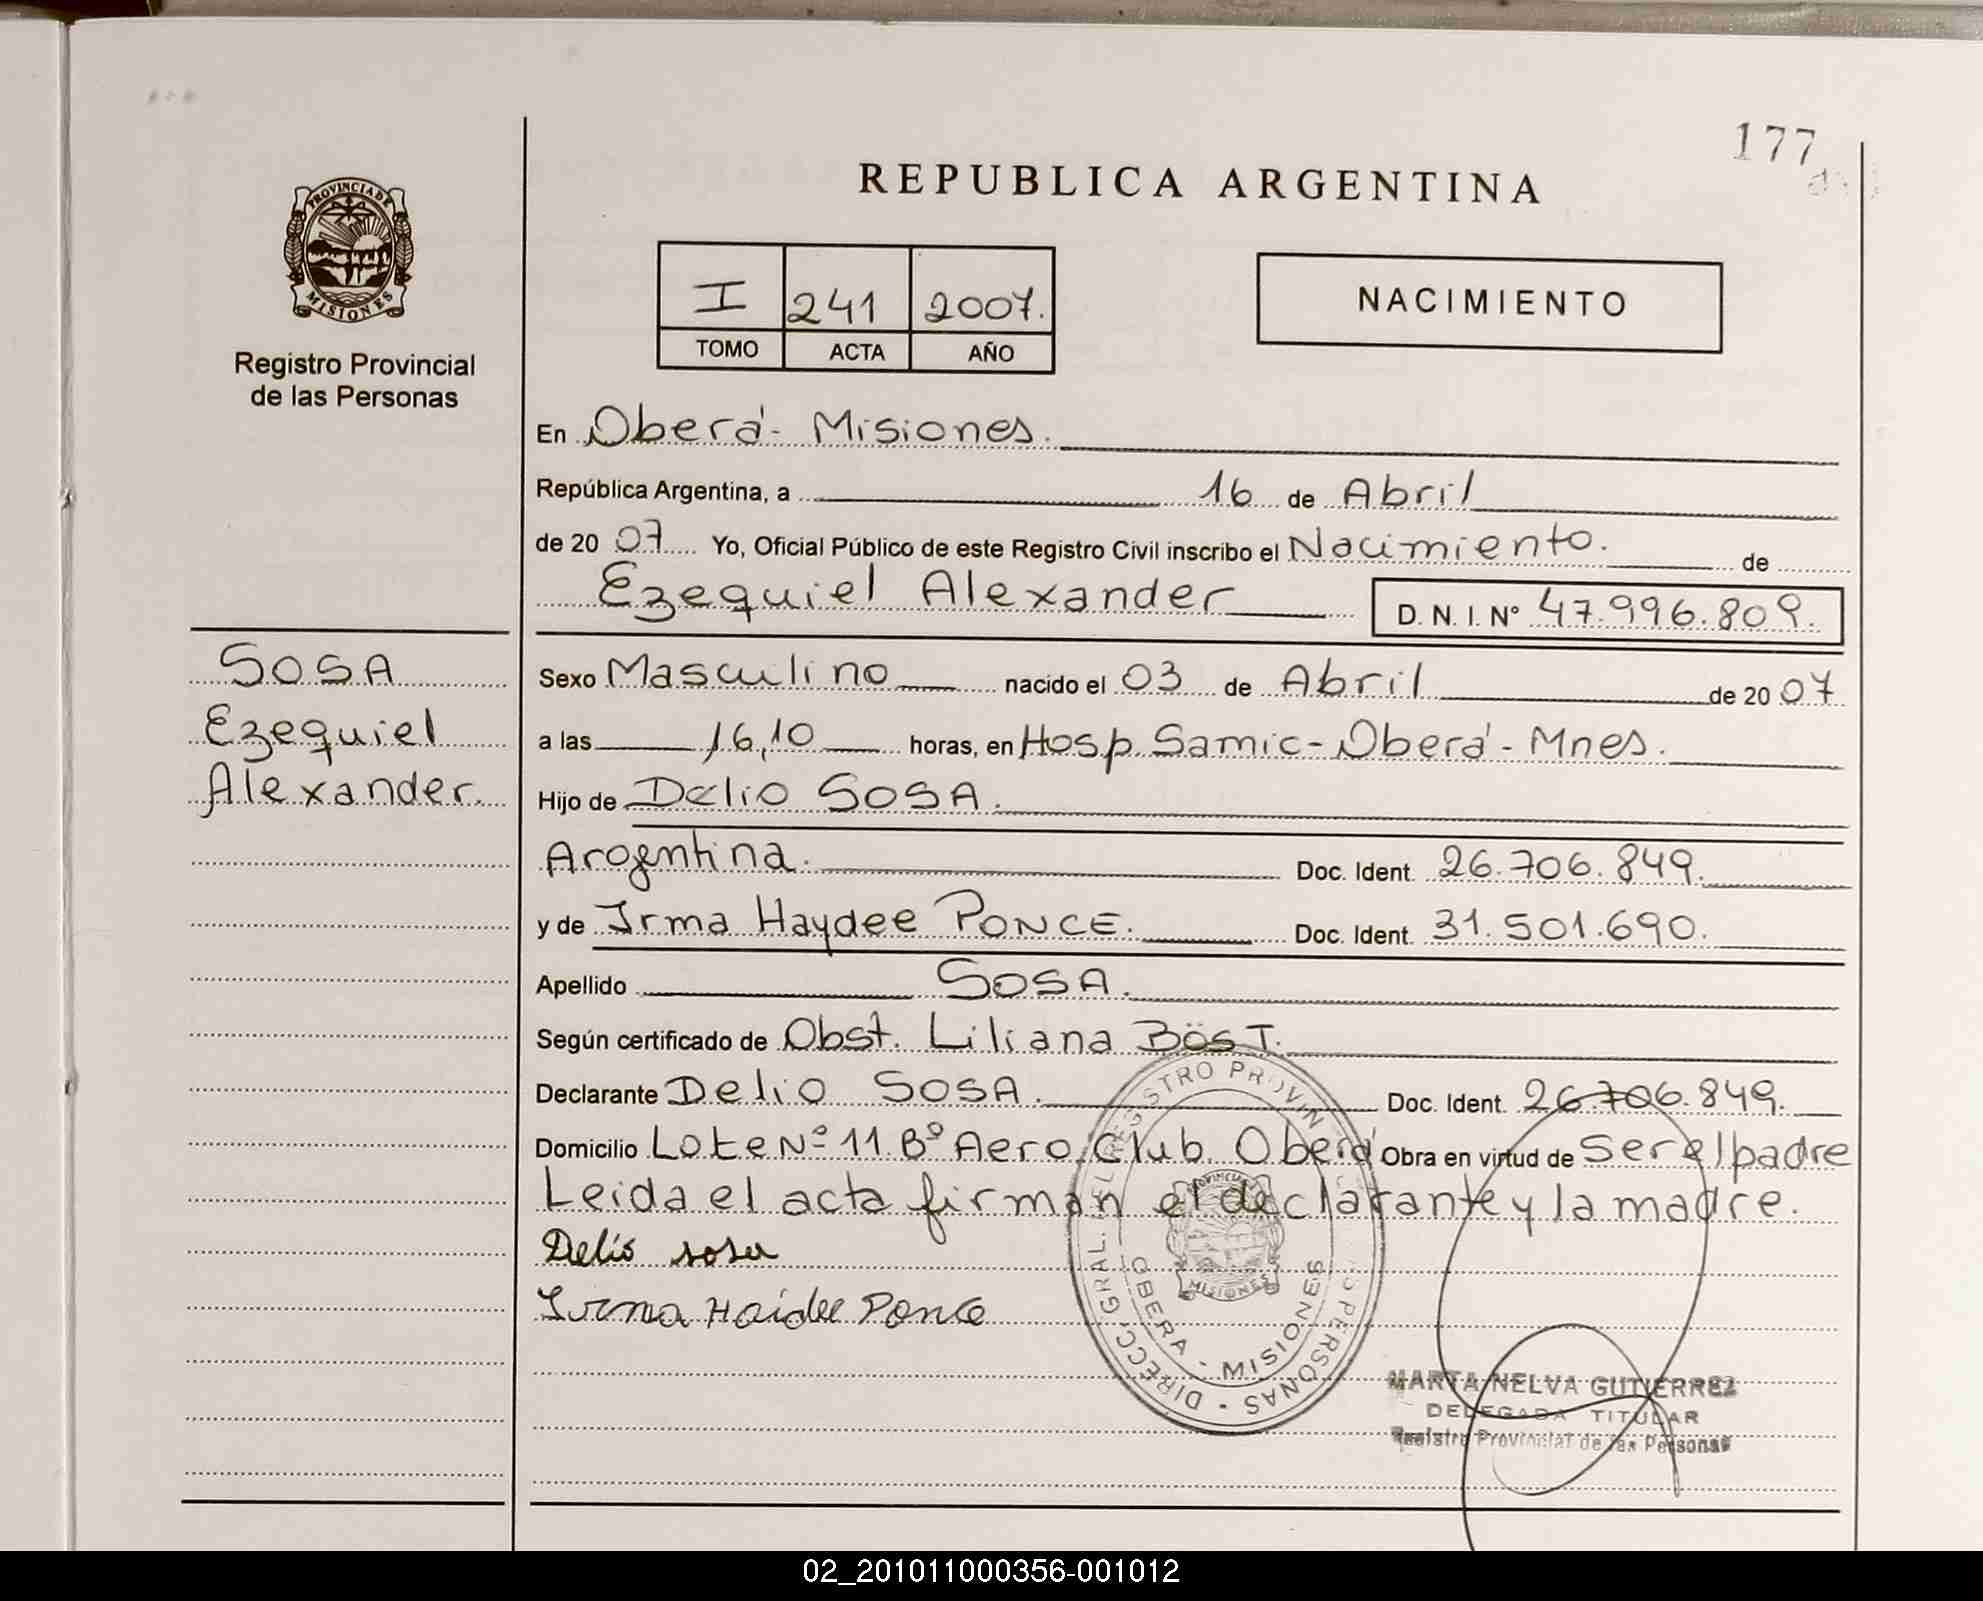 177
REPUBLICA ARGENTINA
PROVINCIA DE
MISIONES
Registro Provincial
de las Personas
I 241 2007.
TOMO ACTA AÑO
NACIMIENTO
En Oberá - Misiones.
República Argentina, a 16 de Abril
de 2007 Yo, Oficial Público de este Registro Civil inscribo el Nacimiento. de
Ezequiel Alexander D. N. I. Nº 47.996.809.
SOSA
Ezequiel
Alexander.
Sexo Masculino nacido el 03 de Abril de 2007
a las 16,10 horas, en Hosp. Samic - Oberá - Mnes.
Hijo de Delio SOSA.
Argentina. Doc. Ident. 26.706.849.
y de Irma Haydee PONCE. Doc. Ident. 31.501.690.
Apellido SOSA.
Según certificado de Obst. Liliana BösT.
Declarante Delio SOSA. Doc. Ident. 26.706.849.
Domicilio Lote Nº 11 Bº Aero Club Oberá Obra en virtud de Ser el padre
Leida el acta firman el declarante y la madre.
Delio sosa
Irma Haidee Ponce
DIRECC. GRAL. DEL REGISTRO PROVIN PERSONAS
OBERA - MISIONES
PROVINCIA
MISIONES
MARTA NELVA GUTIERREZ
DELEGADA TITULAR
Registro Provincial de las Personas
02_201011000356-001012